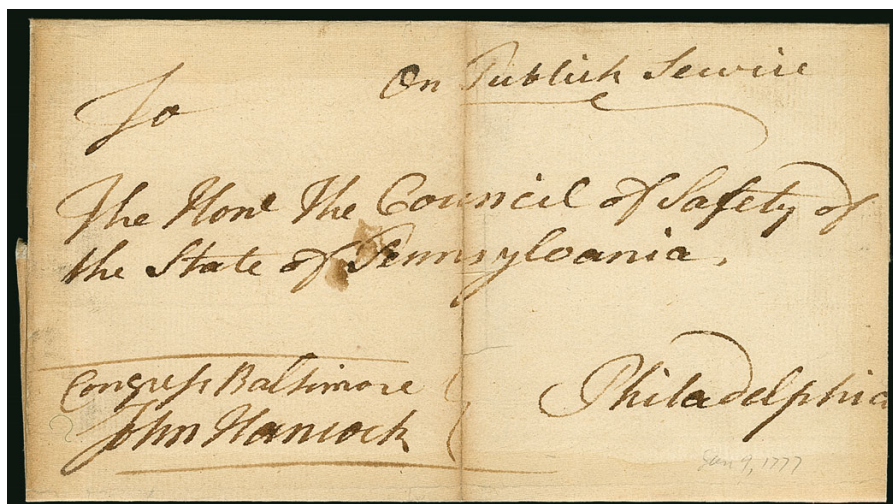 On Publick Service
To
The Honl. The Council of Safety of
the State of Pennsylvania.
Congress Baltimore
John Hancock
Philadelphia
Jan 9, 1777